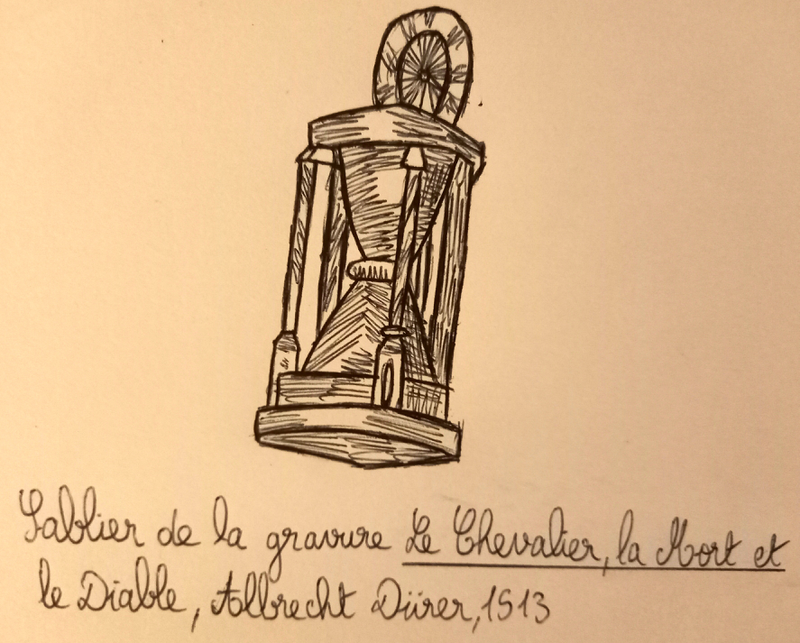 Sablier de la gravure Le Chevalier, la Mort et
le Diable, Albrecht Dürer, 1513